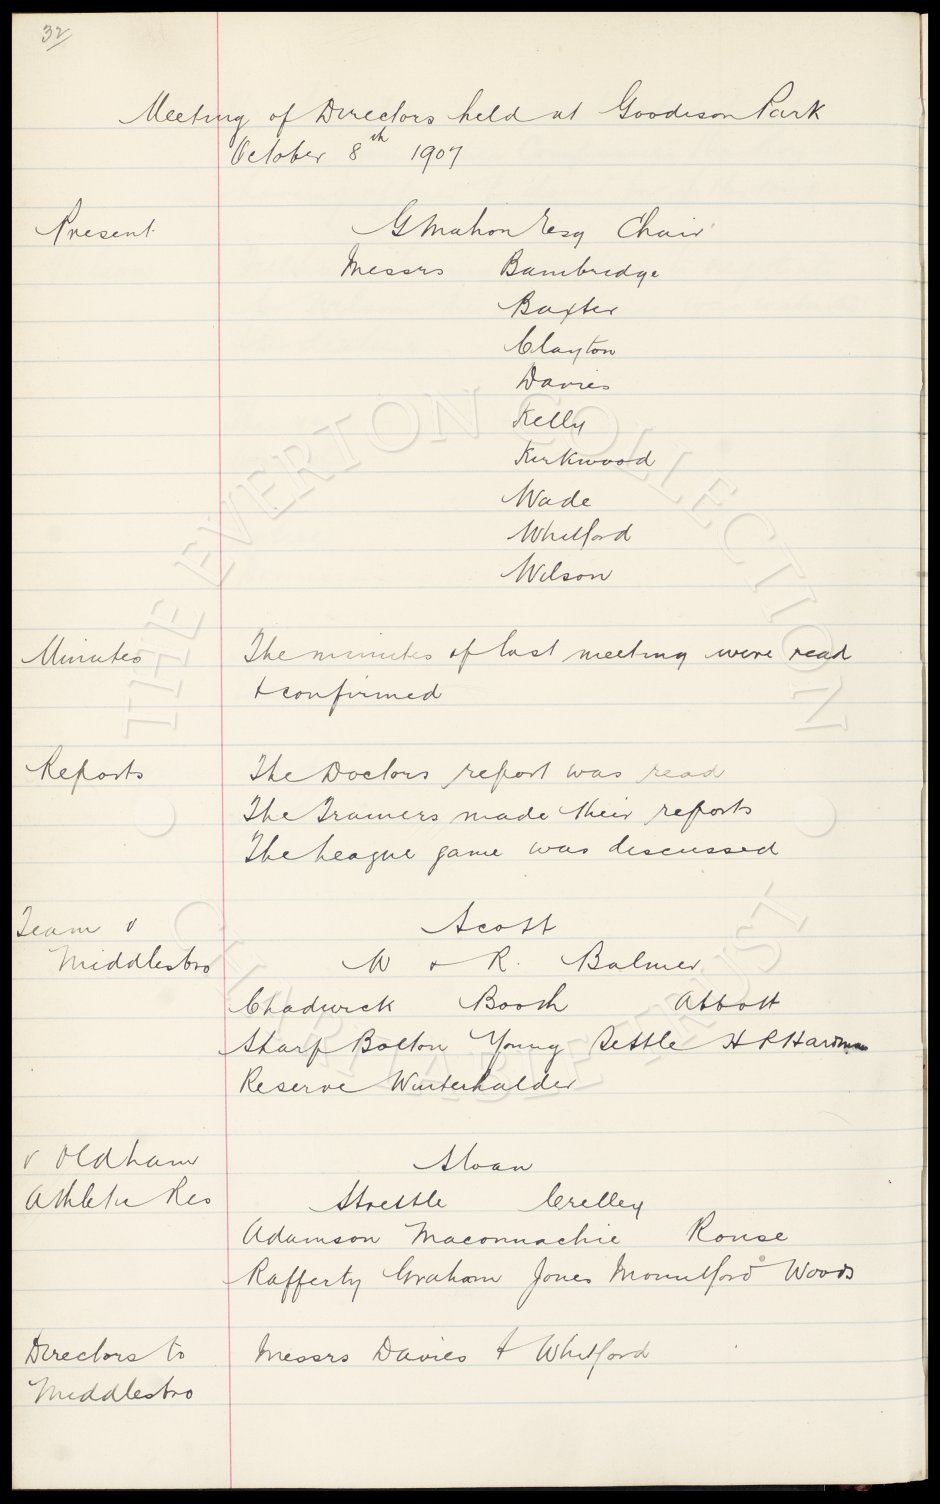 32
Meeting of Directors held at Goodison Park
October 8th 1907
Present G Mahon Esq Chair
Messrs Bainbridge
Baxter
Clayton
Davies
Kelly
Kirkwood
Wade
Whitford
Wilson
Minutes The minutes of last meeting were read
& confirmed
Reports The Doctors report was read
The Trainers made their reports
The League game was discussed
Team v Scott
Middlesbro W & R. Balmer
Chadwick Booth Abbott
Sharp Bolton Young Settle H P Hardman
Reserve Winterhalder
v Oldham Sloan
Athletic Res Strettle Crelley
Adamson Maconnachie Rouse
Rafferty Graham Jones Mountford Woods
Directors to Messrs Davies & Whitford
Middlesbro
THE EVERTON COLLECTION
CHARITABLE TRUST